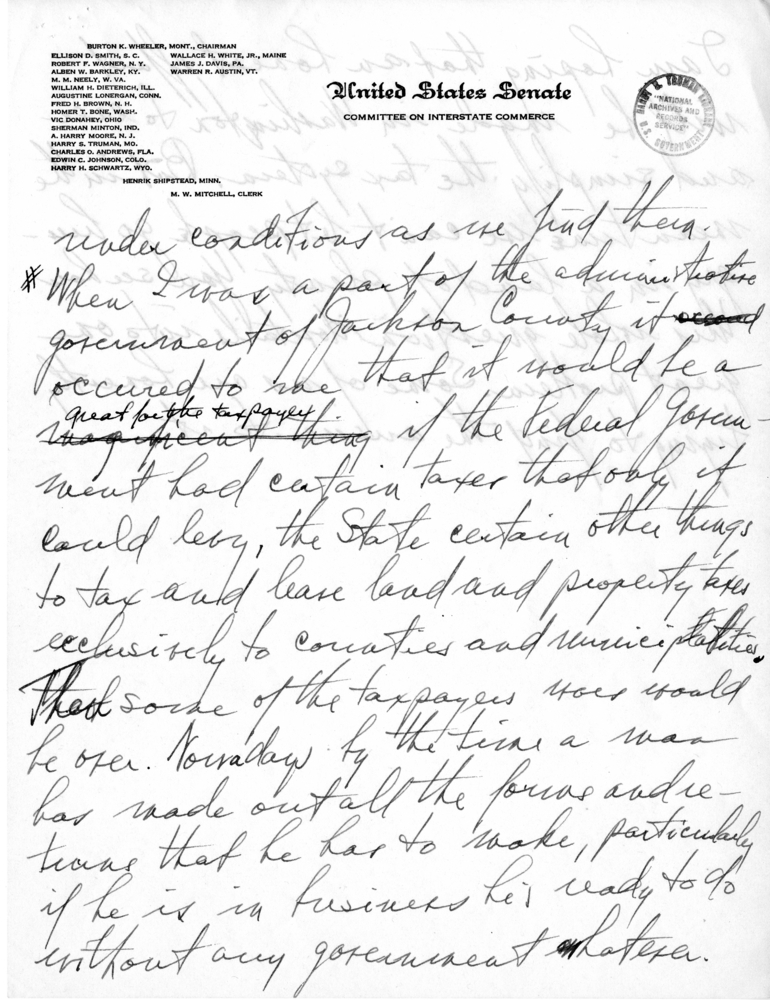 BURTON K. WHEELER, MONT., CHAIRMAN
ELLISON D. SMITH, S. C. WALLACE H. WHITE, JR., MAINE
ROBERT F. WAGNER, N. Y. JAMES J. DAVIS, PA.
ALBEN W. BARKLEY, KY. WARREN R. AUSTIN, VT.
M. M. NEELY, W. VA.
WILLIAM H. DIETERICH, ILL.
AUGUSTINE LONERGAN, CONN.
FRED H. BROWN, N. H.
HOMER T. BONE, WASH.
VIC DONAHEY, OHIO
SHERMAN MINTON, IND.
A. HARRY MOORE, N. J.
HARRY S. TRUMAN, MO.
CHARLES O. ANDREWS, FLA.
EDWIN C. JOHNSON, COLO.
HARRY H. SCHWARTZ, WYO.
HENRIK SHIPSTEAD, MINN.
M. W. MITCHELL, CLERK
United States Senate
COMMITTEE ON INTERSTATE COMMERCE
HARRY S. TRUMAN LIBRARY
"NATIONAL
ARCHIVES AND
RECORDS
SERVICE"
U.S. GOVERNMENT
under conditions as we find them.
# When I was a part of the administrative
government of Jackson County it
occured to me that it would be a
great for the taxpayer
magnificent thing if the Federal Govern-
ment had certain taxes that only it
could levy, the State certain other things
to tax and leave land and property taxes
exclusively to counties and municipalities.
Then some of the taxpayers woes would
be over. Nowadays by the time a man
has made out all the forms and re-
turns that he has to make, particularly
if he is in business he's ready to do
without any government whatever.